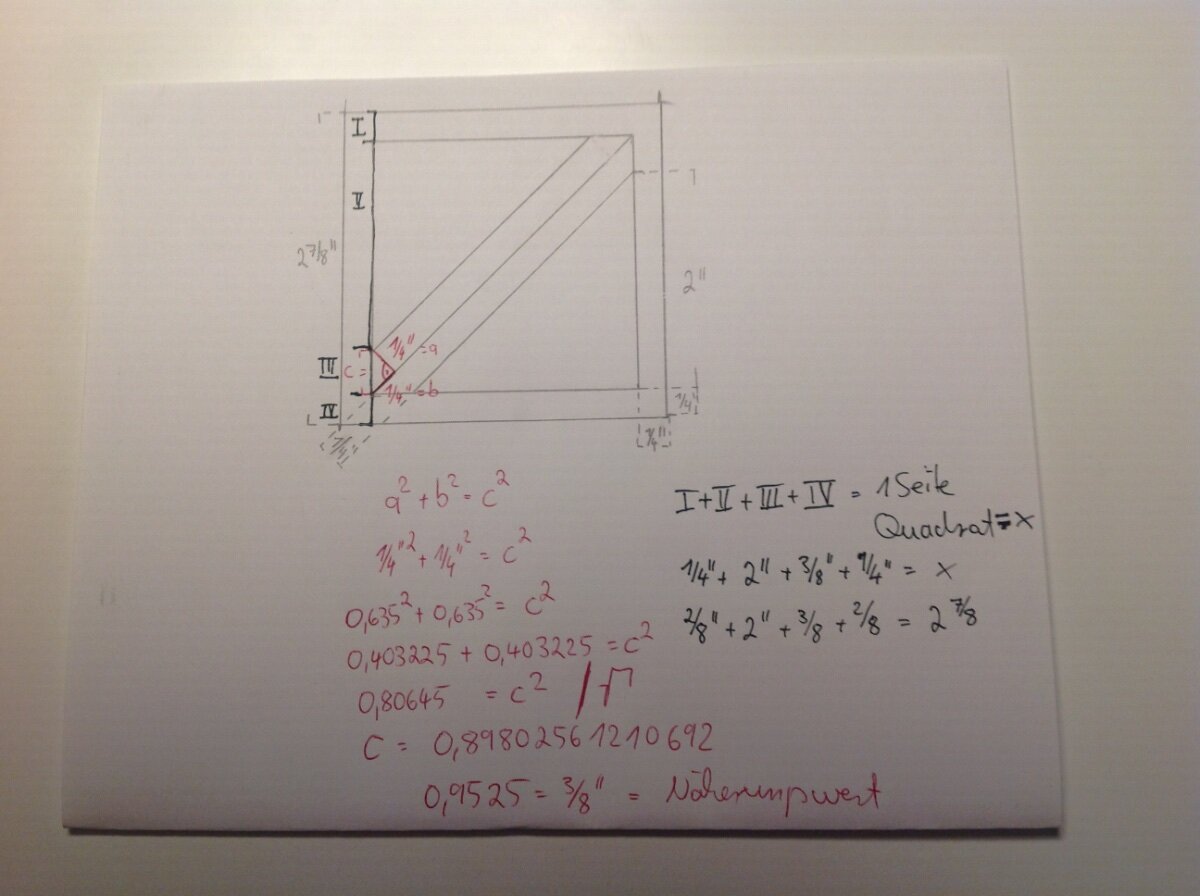 I
V
2 7/8"
2"
1/4" = a
III
c =
1/4" = b
IV
1/4"
1/4"
1/4"
a² + b² = c²
1/4"² + 1/4"² = c²
0,635² + 0,635² = c²
0,403225 + 0,403225 = c²
0,80645 = c² / √
c = 0,89802561210692
0,9525 = 3/8" = Näherungswert
I + V + III + IV = 1 Seite
Quadrat = x
1/4" + 2" + 3/8" + 1/4" = x
2/8" + 2" + 3/8 + 2/8 = 2 7/8